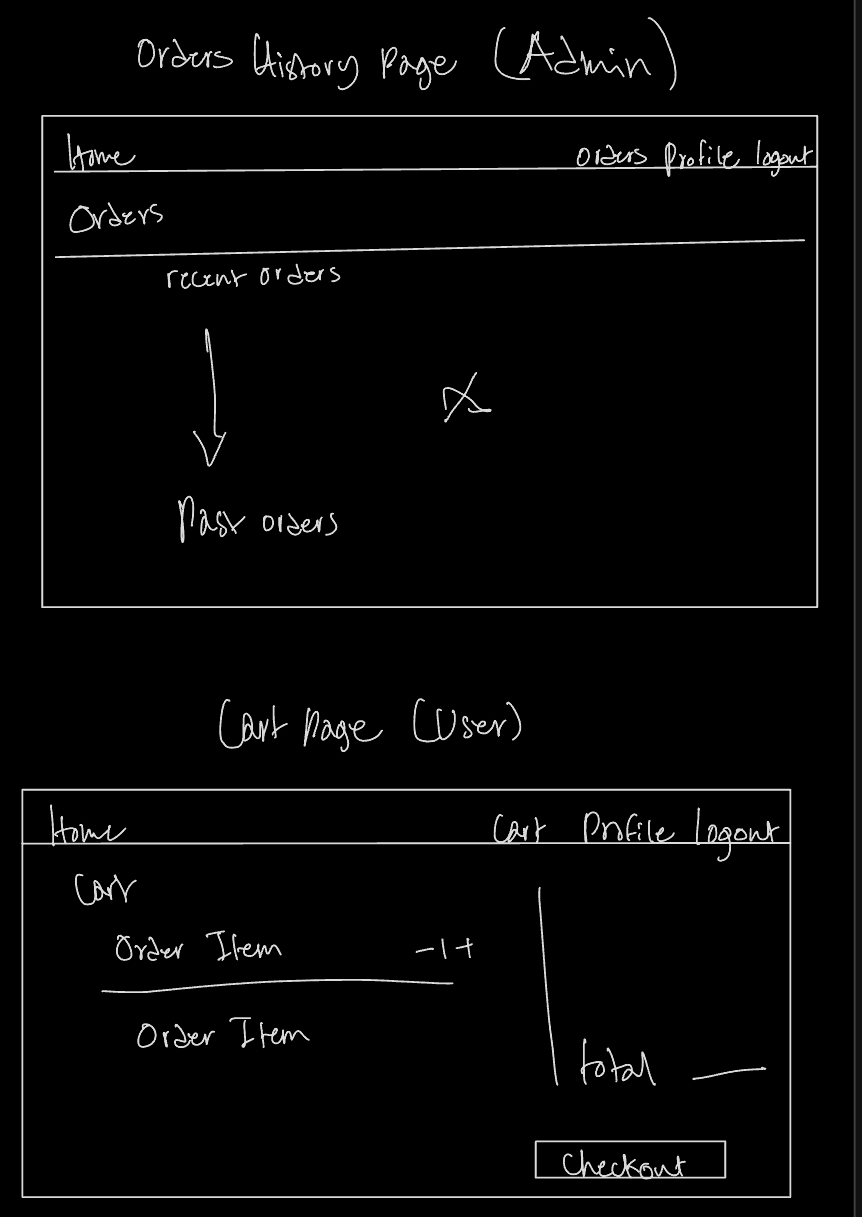 Orders History Page (Admin)
Home Orders Profile logout
Orders
recent orders
Past orders
Cart Page (User)
Home Cart Profile logout
Cart
Order Item - 1 +
Order Item
total
Checkout